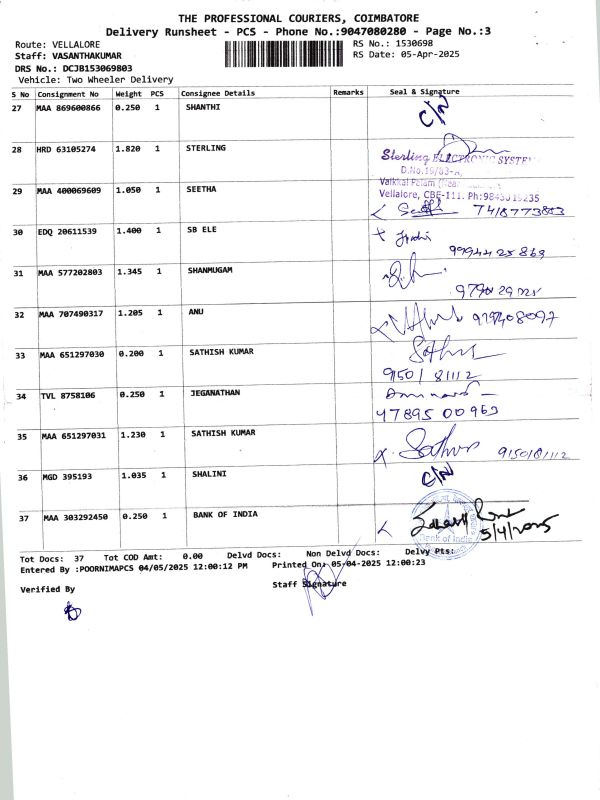 THE PROFESSIONAL COURIERS, COIMBATORE
Delivery Runsheet - PCS - Phone No.:9047080280 - Page No.:3
Route: VELLALORE
RS No.: 1530698
Staff: VASANTHAKUMAR
RS Date: 05-Apr-2025
DRS No.: DCJB153069803
Vehicle: Two Wheeler Delivery
S No Consignment No Weight PCS Consignee Details Remarks Seal & Signature
27 MAA 869600866 0.250 1 SHANTHI C/N
28 HRD 63105274 1.820 1 STERLING
Sterling ELECTRONIC SYSTEM
D.No.
29 MAA 400069609 1.050 1 SEETHA
Vellalore, CBE-111. Ph:
7418773803
30 EDQ 20611539 1.400 1 SB ELE
9994425869
31 MAA 577202803 1.345 1 SHANMUGAM
32 MAA 707490317 1.205 1 ANU
33 MAA 651297030 0.200 1 SATHISH KUMAR
9150181112
34 TVL 8758106 0.250 1 JEGANATHAN
47895 00963
35 MAA 651297031 1.230 1 SATHISH KUMAR 9150181112
36 MGD 395193 1.035 1 SHALINI C/N
37 MAA 303292450 0.250 1 BANK OF INDIA
Bank of India
5/4/2025
Tot Docs: 37 Tot COD Amt: 0.00 Delvd Docs: Non Delvd Docs: Delvy Pts:
Entered By :POORNIMAPCS 04/05/2025 12:00:12 PM Printed On: 05-04-2025 12:00:23
Verified By
Staff Signature